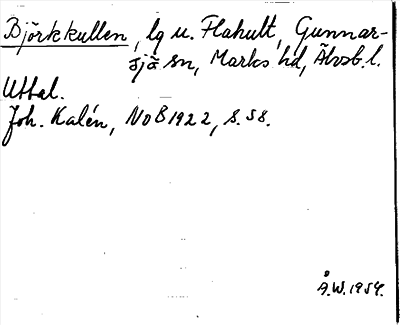 Björkkullen, lg u. Flahult, Gunnar-
sjö sn, Marks hd, Älvsb. l.
Uttal.
Joh. Kalén, NoB 1922, s. 58.
Å.W. 1954.